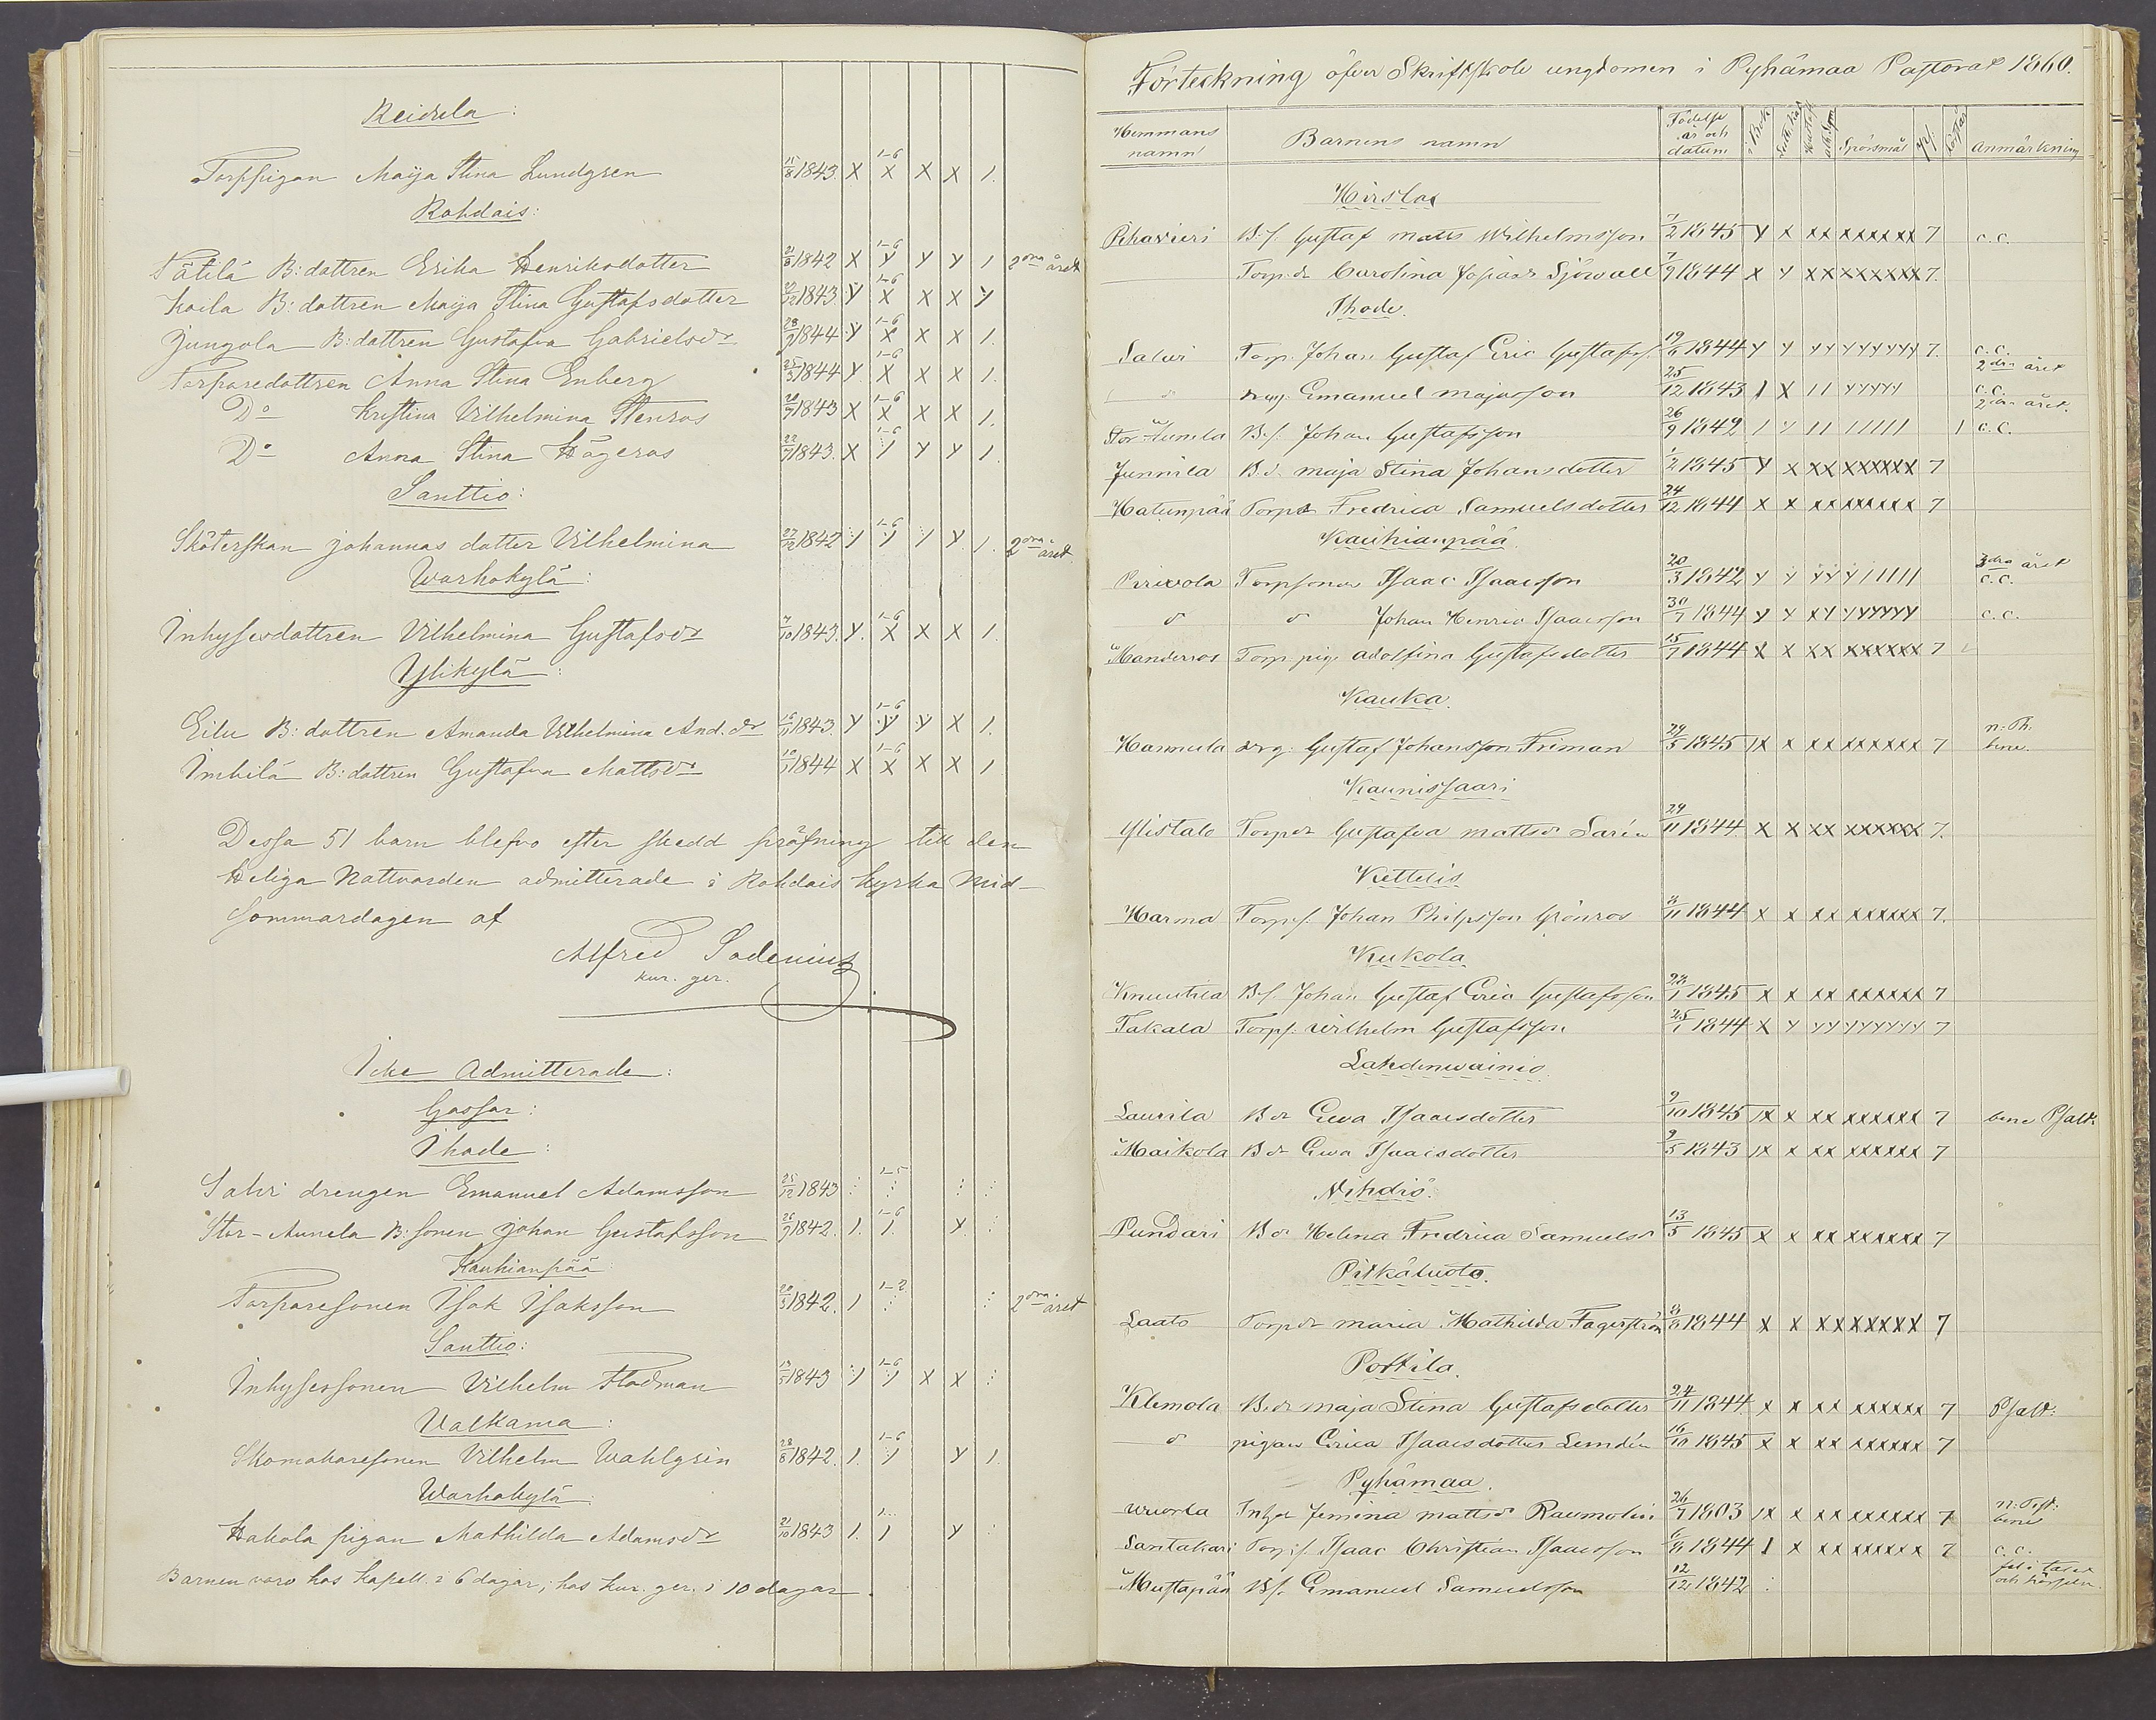 Reidila:
Torppigan Maija Stina Lundgren 11/8 1843. X 1-6 X X X 1.
Rohdais:
Pätilä B: dottren Erika Henriksdotter 21/8 1842 X 1-6 Y Y Y 1 2dra året
Kaila B: dottren Maija Stina Gustafsdotter 1843 Y 1-6 X X X Y
Jungola B: dottren Gustafva Gabrielsdr 28/9 1844 Y 1-6 X X X 1.
Torparedottren Anna Stina Enberg 25/3 1844 Y. 1-6 X X X 1.
Do Kristina Vilhelmina Stenros 20/7 1843 X 1-6 X X X 1.
Do Anna Stina Högeros 22/7 1843. X 1-6 Y Y Y 1.
Santtio:
Sköterskan Johannas dotter Vilhelmina 27/12 1842 Y 1-6 Y Y Y. 1. 2dra året
Warhokylä:
Inhysesdottren Vilhelmina Gustafsdr 4/10 1843. Y. 1-6 X X X 1.
Ylikylä:
Eilu B: dottren Amanda Vilhelmina And. dr 15/11 1843. Y 1-6 Y Y X 1.
Imbilä B: dottren Gustafva Mattsdr 10/1 1844 X 1-6 X X X 1
Dessa 51 barn blefvo efter skedd pröfning till den
Heliga Nattvarden admitterade i Rohdais kyrka Mid-
sommardagen af
Alfred Sadenius
kur. ger.
Icke Admitterade:
Gossar:
Ihode:
Salvi drengen Emanuel Adamsson 25/12 1843 1-5
Stor-Aunela B: sonen Johan Gustafsson 26/9 1842. 1. 1-6 1. Y
Kauhianpää
Torparesonen Isak Isaksson 20/3 1842. 1 1-2 2dra året
Santtio:
Inhysessonen Vilhelm Flodman 13/5 1843 Y 1-6 Y X X
Valkama:
Skomakaresonen Vilhelm Wahlgrén 28/8 1842. 1. 1-6 Y Y 1.
Warhokylä:
Hakola pigan Mathilda Adamsdr 21/10 1843 1. 1 Y
Barnen voro hos kapell. i 6 dagar; hos kur. ger. i 10 dagar.
Förteckning öfver Skriftskole ungdomen i Pyhämaa Pastorat 1860.
Hemmans namn Barnens namn Födelse år och datum i Bok Spörsmål Anmärkning
Hirslax
Pihavuori B. s. Gustaf Matts Wilhelmsson 7/2 1845 Y X XX XXXXXX 7 c.c.
Torp. dr Carolina Josias dr Sjöwall 7/9 1844 X Y XX XXXXXX 7.
Ihode.
Salvi Torp. Johan Gustaf Eric Gustafss. 19/6 1844 Y Y YY YYYYYY 7. c.c.
d drag. Emanuel Majasson 25/12 1843 1 X 11 YYYYY 2dra året c.c.
Stor-Aunela B. s. Johan Gustafsson 26/9 1842 1 Y 11 11111 1 2dra året. c.c.
Junnila B. d. Maja Stina Johansdotter 1/2 1845 Y X XX XXXXXX 7
Hatunpää Torp dr Fredrica Samuelsdotter 24/12 1844 X X XX XXXXXX 7
Kauhianpää
Pirivola Torpsonen Isaac Isaacsson 20/3 1842 Y Y YY Y 11111 3dra året c.c.
d d Johan Henric Isaacsson 30/7 1844 Y Y XY YYYYYY c.c.
Manderros Torp. pig. Adolfina Gustafsdotter 15/7 1844 X X XX XXXXXX 7
Kauka.
Hannula drg: Gustaf Johansson Friman 29/5 1845 1X X XX XXXXXX 7 bene.
Kaunissaari
Ylistalo Torp dr Gustafva Mattsdr Sarén 29/11 1844 X X XX XXXXXX 7.
Kettelis
Harma Torp. s. Johan Philpsson Grönros 8/11 1844 X X XX XXXXXX 7.
Kukola
Knuutila B. s. Johan Gustaf Eric Gustafsson 28/1 1845 X X XX XXXXXX 7
Takala Torps. Wilhelm Gustafsson 25/1 1844 X Y YY YYYYYY 7
Lahdenwainio
Laurila B dr Eva Isaacsdotter 9/10 1845 1X X XX XXXXXX 7 bene Psalt.
Maikola B dr Ewa Isaacsdotter 9/5 1843 1X X XX XXXXXX 7
Nihdiö.
Pundari B dr Helena Fredrica Samuelsdr 13/5 1845 X X XX XXXXXX 7
Pitkäluoto.
Laato Torp dr Maria Mathilda Fagerström 8/8 1844 X X XX XXXXXX 7
Polttila.
Klemola B. dr Maja Stina Gustafsdotter 24/11 1844 X X XX XXXXXX 7 Psalt:
d pigan Erica Isaacsdotter Lemdén 16/10 1845 X X XX XXXXXX 7
Pyhämaa.
Wuorla Inh. dr Jemina Mattsdr Raumolin 26/7 1803 1X X XX XXXXXX 7 bene
Santakari Torp. s. Isaac Christian Isaacsson 6/8 1844 1 X XX XXXXXX 7 c.c.
Mustapää B. s. Emanuel Samuelsson 12/12 1842 fel i talet och hörseln.